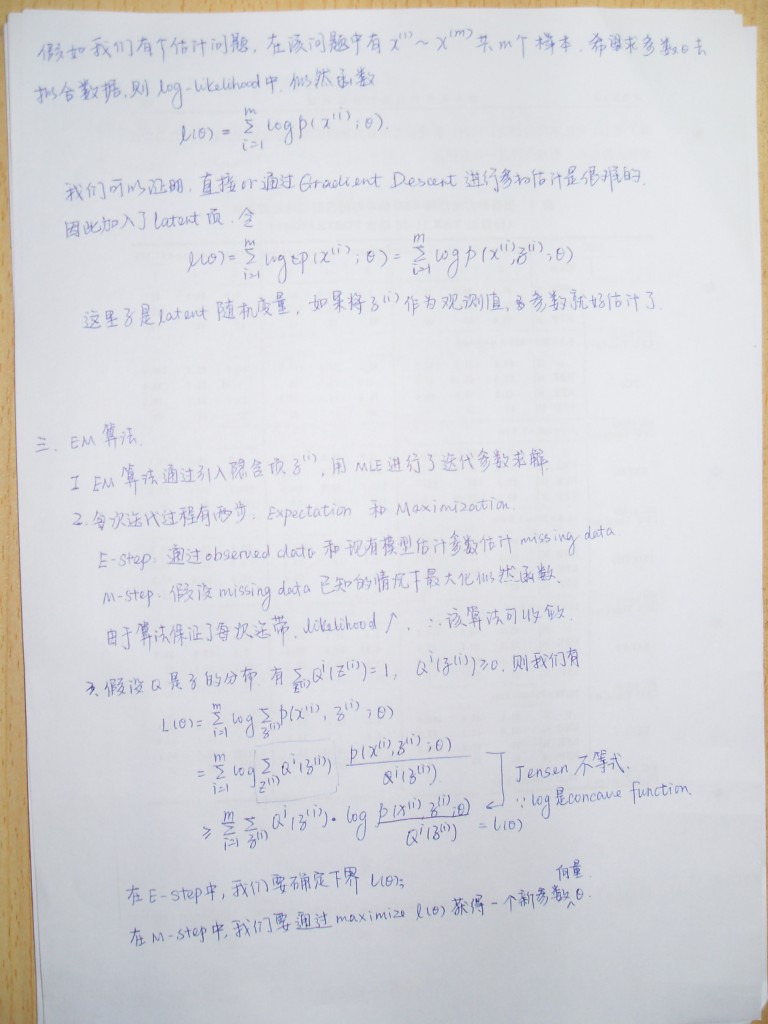 假如我们有个估计问题,在该问题中有 x⁽¹⁾ ~ x⁽ᵐ⁾ 共m个样本,希望求参数θ去
拟合数据,则 log-likelihood中,似然函数
l(θ) = Σ_{i=1}^{m} log p(x⁽ⁱ⁾; θ).
我们可以证明,直接or通过Gradient Descent 进行参数估计是很难的.
因此加入了latent项,令
l(θ) = Σ_{i=1}^{m} log Σp(x⁽ⁱ⁾; θ) = Σ_{i=1}^{m} log p(x⁽ⁱ⁾, z⁽ⁱ⁾; θ)
这里z是latent 随机变量,如果将z⁽ⁱ⁾作为观测值,参数就好估计了.
三. EM算法.
1 EM算法通过引入隐含项z⁽ⁱ⁾,用 MLE进行了迭代参数求解.
2. 每次迭代过程有两步: Expectation 和 Maximization.
E-step: 通过observed data 和现有模型估计参数估计 missing data
M-step: 假设missing data 已知的情况下最大化似然函数.
由于算法保证了每次迭带,likelihood ↗, ∴该算法可收敛.
3. 假设Q是z的分布,有 Σ_{z⁽ⁱ⁾} Qⁱ(z⁽ⁱ⁾) = 1, Qⁱ(z⁽ⁱ⁾) ≥ 0, 则我们有
L(θ) = Σ_{i=1}^{m} log Σ_{z⁽ⁱ⁾} p(x⁽ⁱ⁾, z⁽ⁱ⁾; θ)
= Σ_{i=1}^{m} log Σ_{z⁽ⁱ⁾} Qⁱ(z⁽ⁱ⁾) p(x⁽ⁱ⁾, z⁽ⁱ⁾; θ) / Qⁱ(z⁽ⁱ⁾)
Jensen 不等式.
∵ log是concave function.
≥ Σ_{i=1}^{m} Σ_{z⁽ⁱ⁾} Qⁱ(z⁽ⁱ⁾) · log p(x⁽ⁱ⁾, z⁽ⁱ⁾; θ) / Qⁱ(z⁽ⁱ⁾) = l(θ)
在E-step中,我们要确定下界 l(θ);
在M-step中,我们要通过maximize l(θ) 获得一个新参数向量θ.